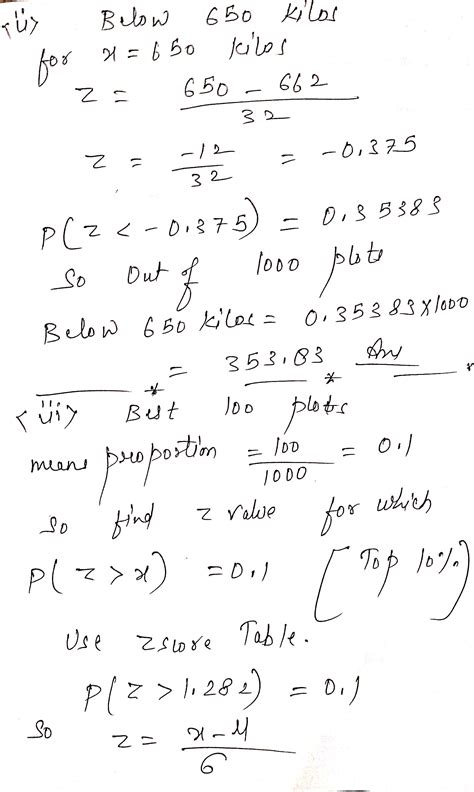 <ii> Below 650 kilos
for x = 650 kilos
z = 650 - 662 / 32
z = -12 / 32 = -0.375
P(z < -0.375) = 0.35383
So Out of 1000 plots
Below 650 kilos = 0.35383 x 1000
= 353.83 Ans
<iii> Best 100 plots
means proportion = 100 / 1000 = 0.1
so find z value for which
P(z > x) = 0.1 [Top 10%]
Use zscore Table.
P(z > 1.282) = 0.1
So z = x - μ / σ